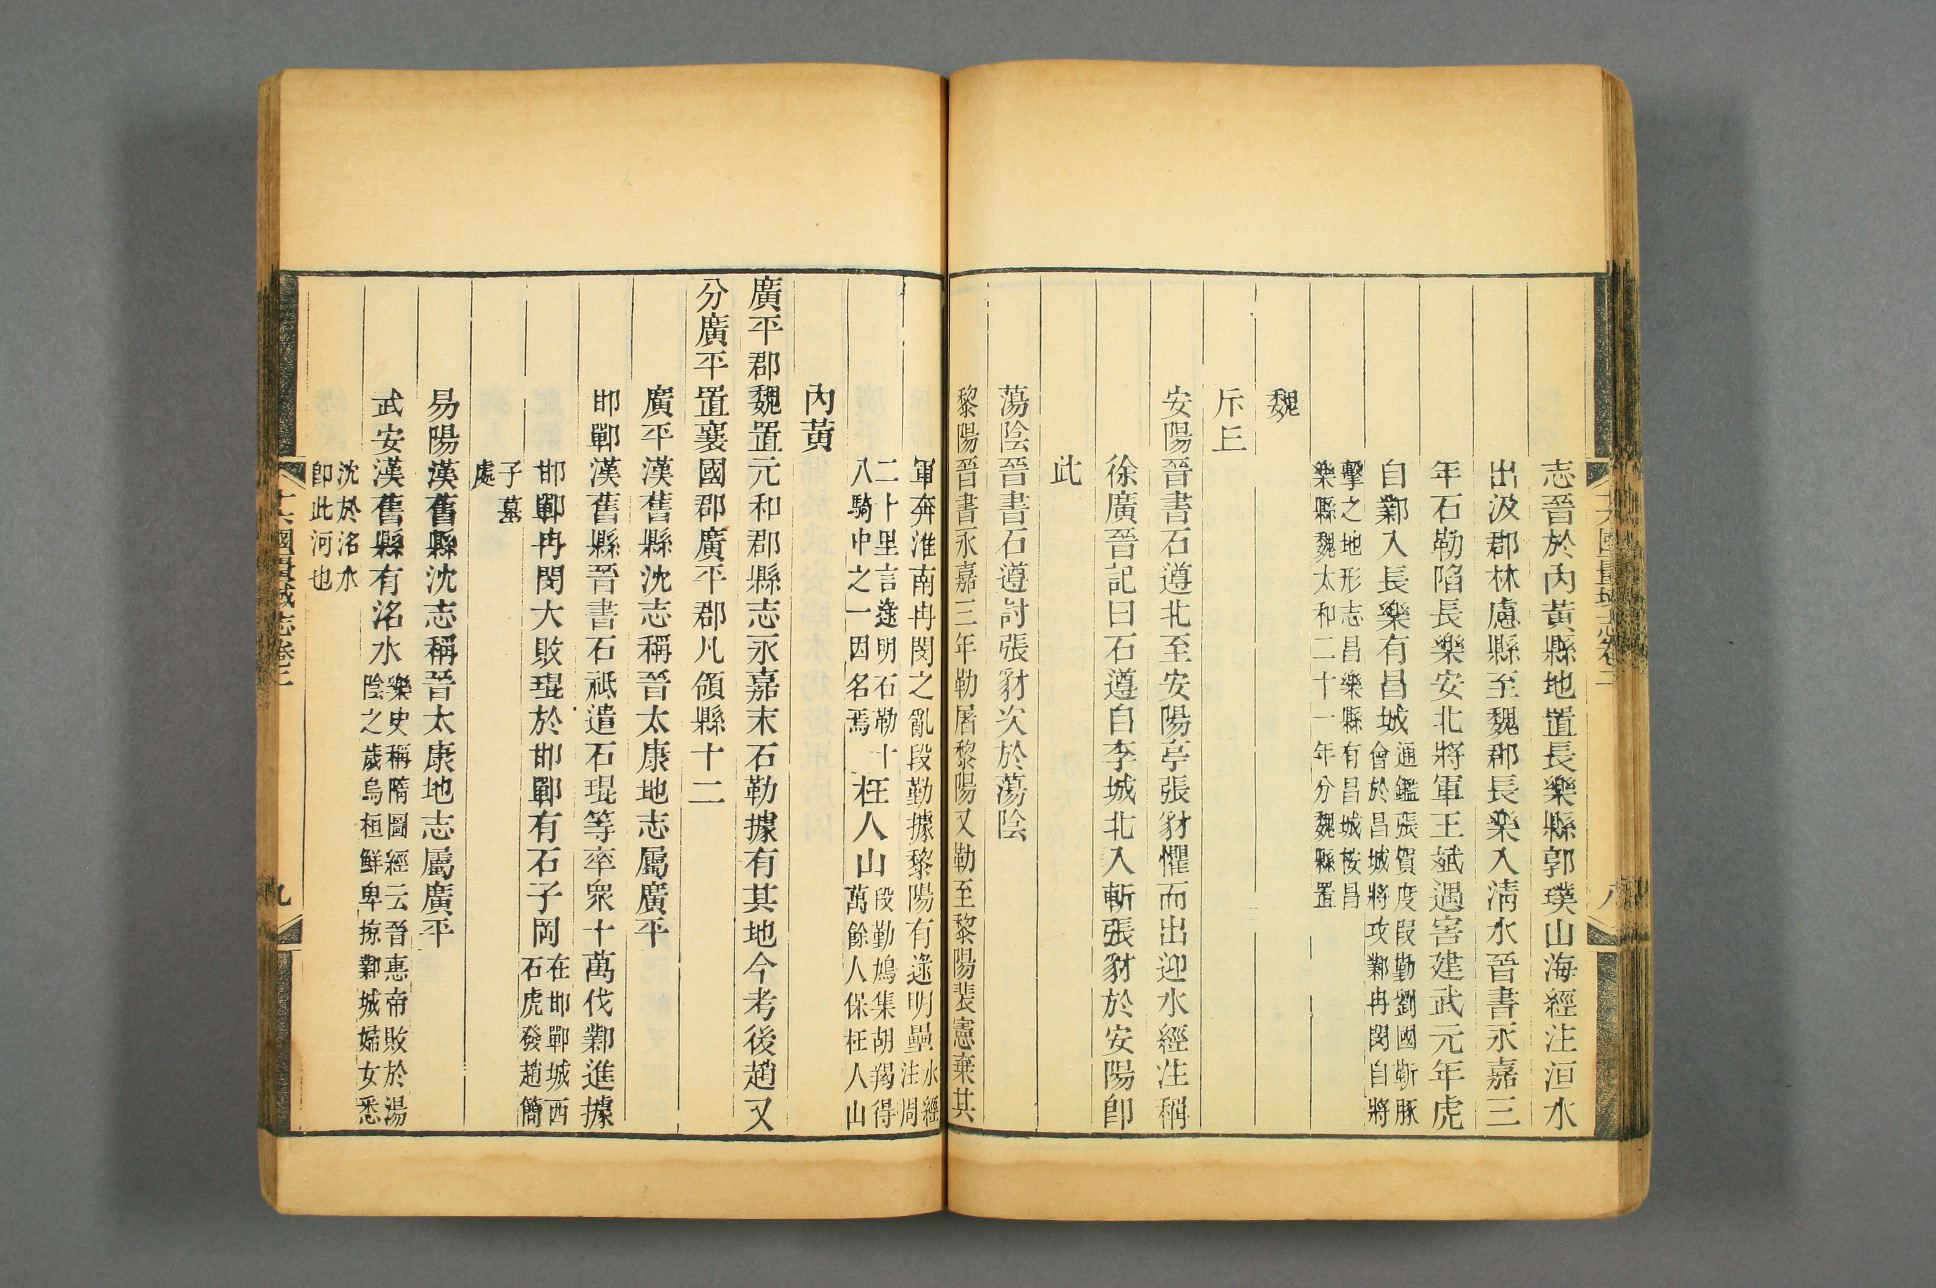 志晉於內黃縣地置長樂縣郭璞山海經注洹水
出汲郡林慮縣至魏郡長樂入清水晉書永嘉三
年石勒陷長樂安北將軍王斌遇害建武元年虎
自鄴入長樂有昌城通鑑張賀度段勤劉國靳豚
會於昌城將攻鄴冉閔自將
擊之地形志昌樂縣有昌城桉昌
樂縣魏太和二十一年分魏縣置
魏
斥丘
安陽晉書石遵北至安陽亭張豺懼而出迎水經注稱
徐廣晉記曰石遵自李城北入斬張豺於安陽卽
此
蕩陰晉書石遵討張豺次於蕩陰
黎陽晉書永嘉三年勒屠黎陽又勒至黎陽裴憲棄其
軍奔淮南冉閔之亂段勤據黎陽有逯明壘水經
注周
二十里言逯明石勒十
八騎中之一因名焉
枉人山段勤鳩集胡羯得
萬餘人保枉人山
內黃
廣平郡魏置元和郡縣志永嘉末石勒據有其地今考後趙又
分廣平置襄國郡廣平郡凡領縣十二
廣平漢舊縣沈志稱晉太康地志屬廣平
邯鄲漢舊縣晉書石祗遣石琨等率衆十萬伐鄴進據
邯鄲冉閔大敗琨於邯鄲有石子岡在邯鄲城西
石虎發趙簡
子墓
處
易陽漢舊縣沈志稱晉太康地志屬廣平
武安漢舊縣有洺水樂史稱隋圖經云晉惠帝敗於湯
陰之歲烏桓鮮卑掠鄴城婦女悉
沈於洺水
卽此河也
十六國疆域志卷二
九